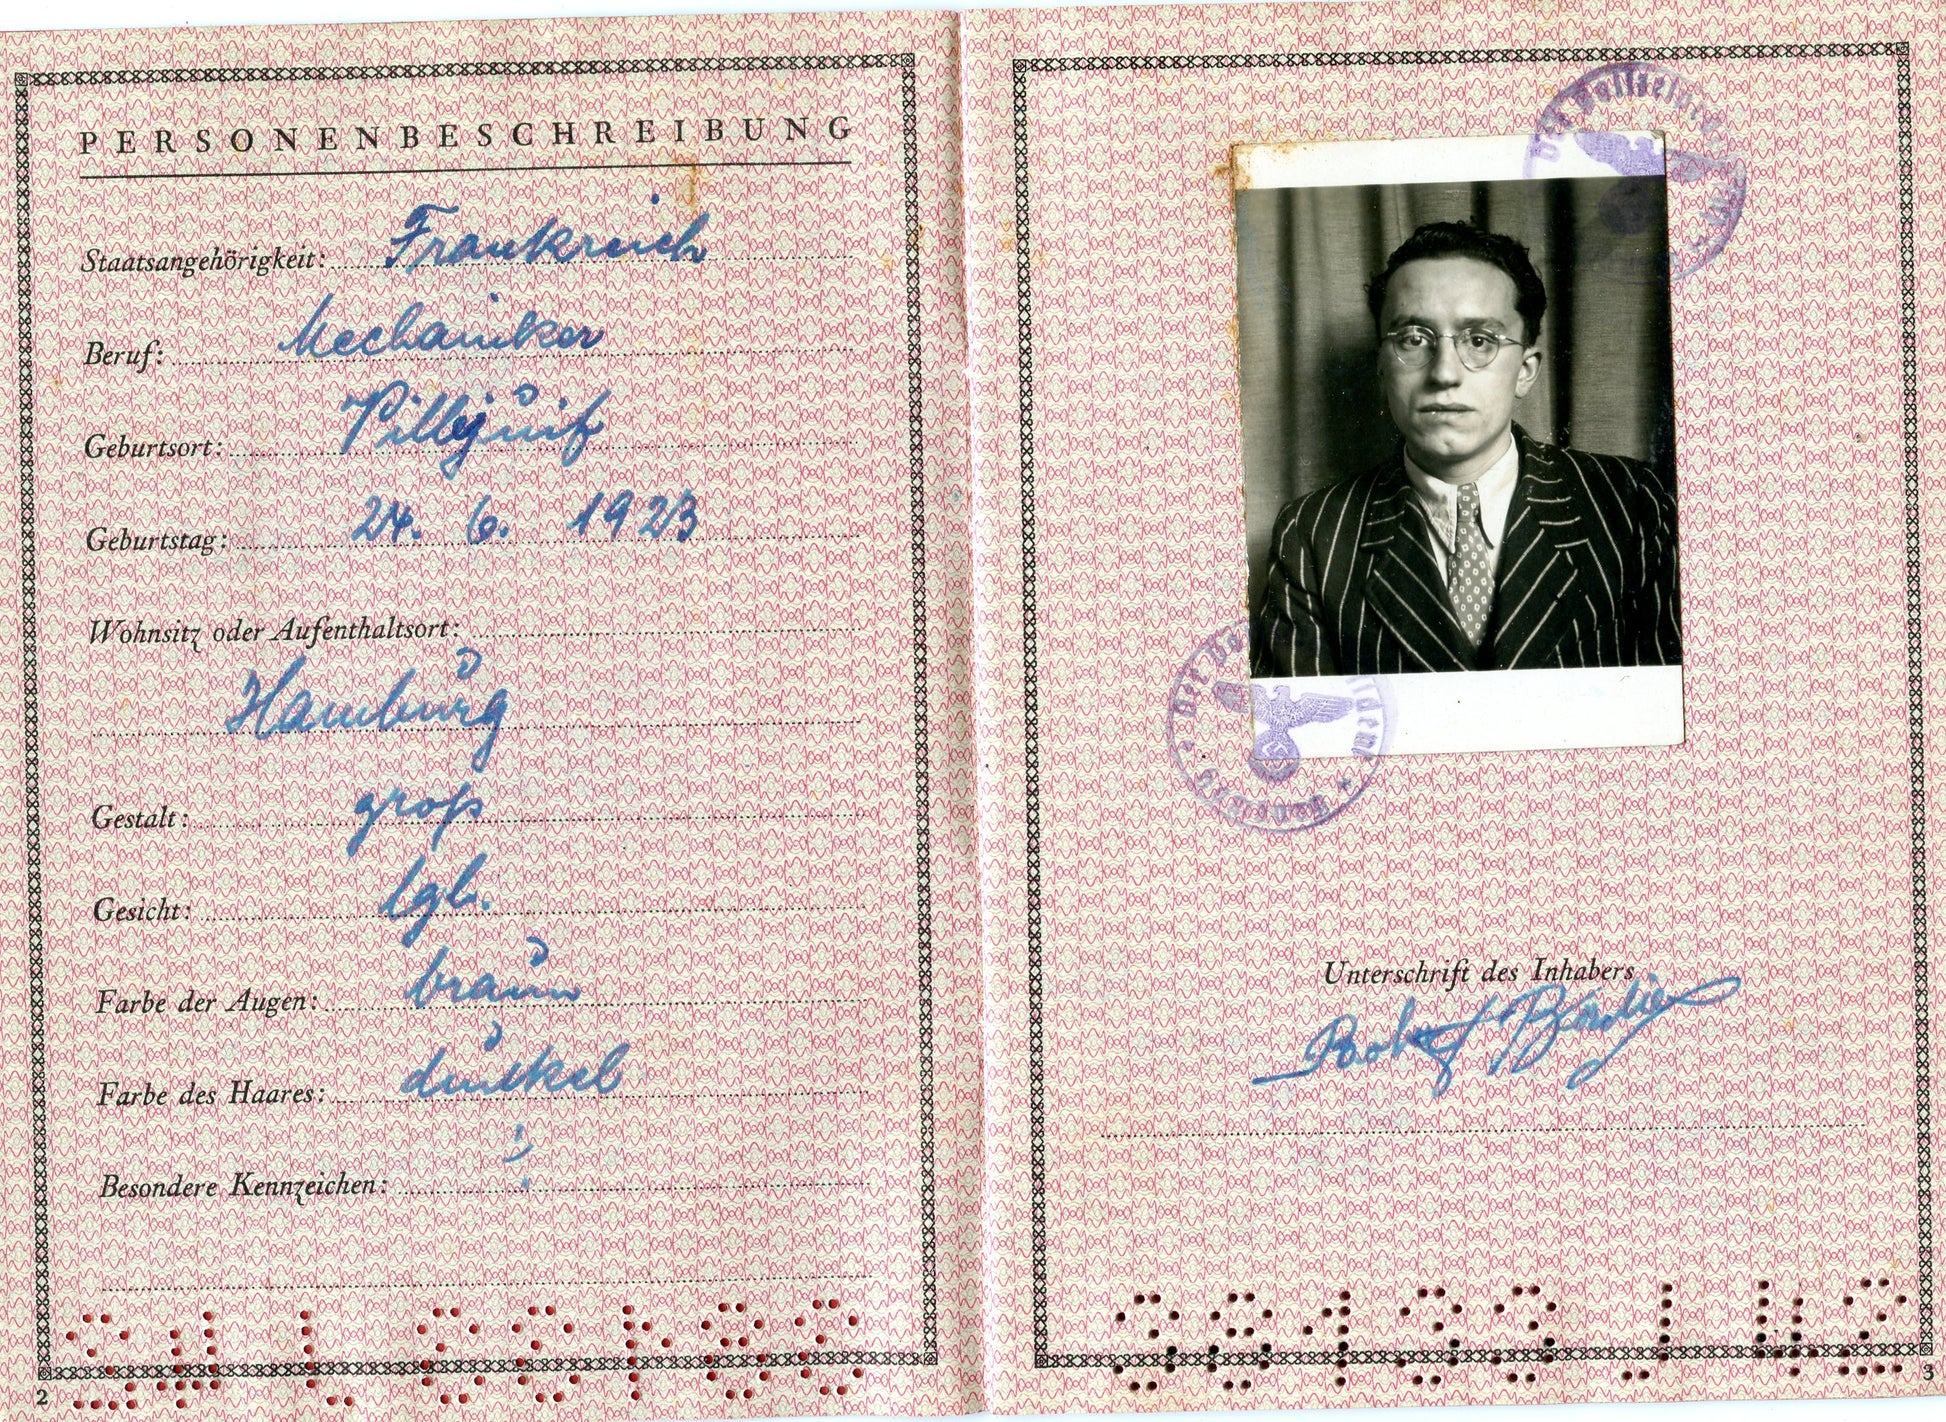 PERSONENBESCHREIBUNG
Staatsangehörigkeit: Frankreich
Beruf: Mechaniker
Geburtsort: Villejuif
Geburtstag: 24. 6. 1923
Wohnsitz oder Aufenthaltsort:
Hamburg
Gestalt: groß
Gesicht: lgl.
Farbe der Augen: braun
Farbe des Haares: dunkel
Besondere Kennzeichen:
2
Der Polizeipräsident
Der Polizeipräsident
Hamburg
Unterschrift des Inhabers
3